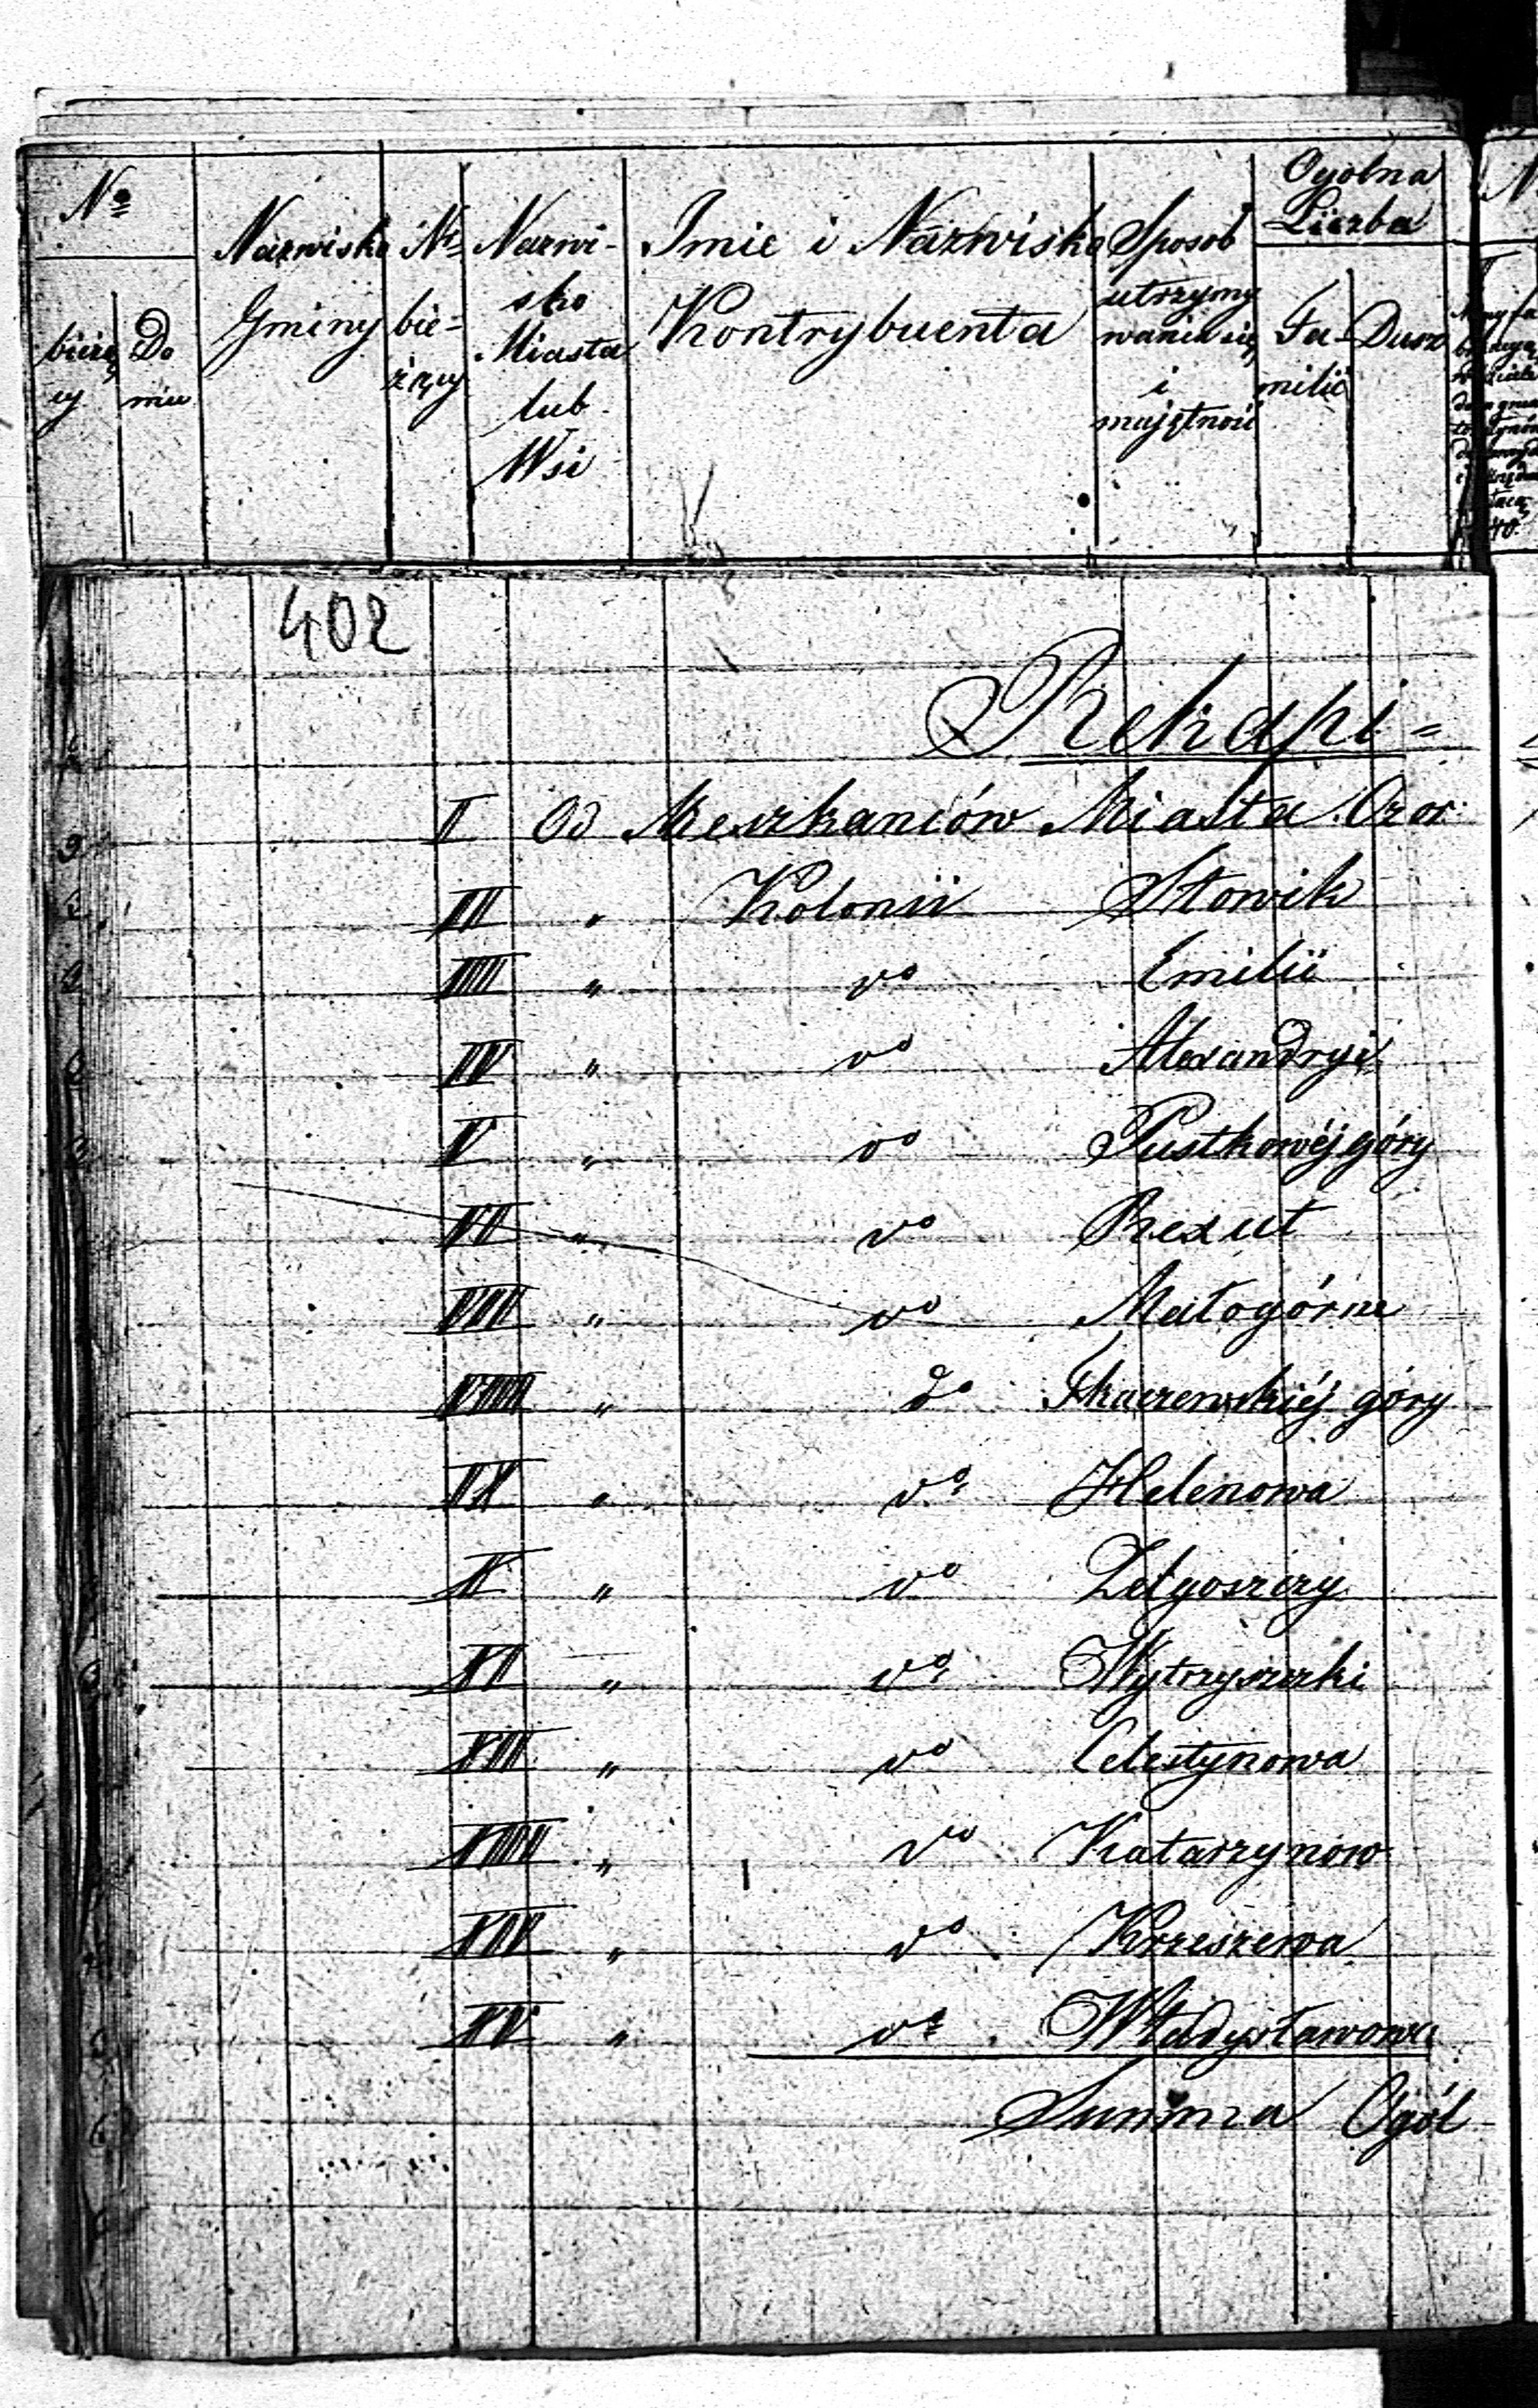 No
bieżą
cy
Do
mu
Nazwisko
Gminy
No
bie-
żący
Nazwi-
sko
Miasta
lub
Wsi
Imie i Nazwisko
Kontrybuenta
Sposob
utrzymy
wania się
i
majętność
Ogolna
Liczba
Fa-
milii
Dusz
402
Rekapi=
I Od Mieszkańców Miasta Ozor
II " Kolonii Słowik
III " do Emilii
IV " do Alexandryi
V " do Pustkowéj góry
VI " do Rexut
VII " do Małogórne
VIII " do Tkaczewskiéj góry
IX " do Helenowa
X " do Zelgoszczy
XI " do Wytrzyszczki
XII " do Celestynowa
XIII " do Katarzynów
XIV " do Krzeszewa
XV " do Władysławowa
Summa Ogól